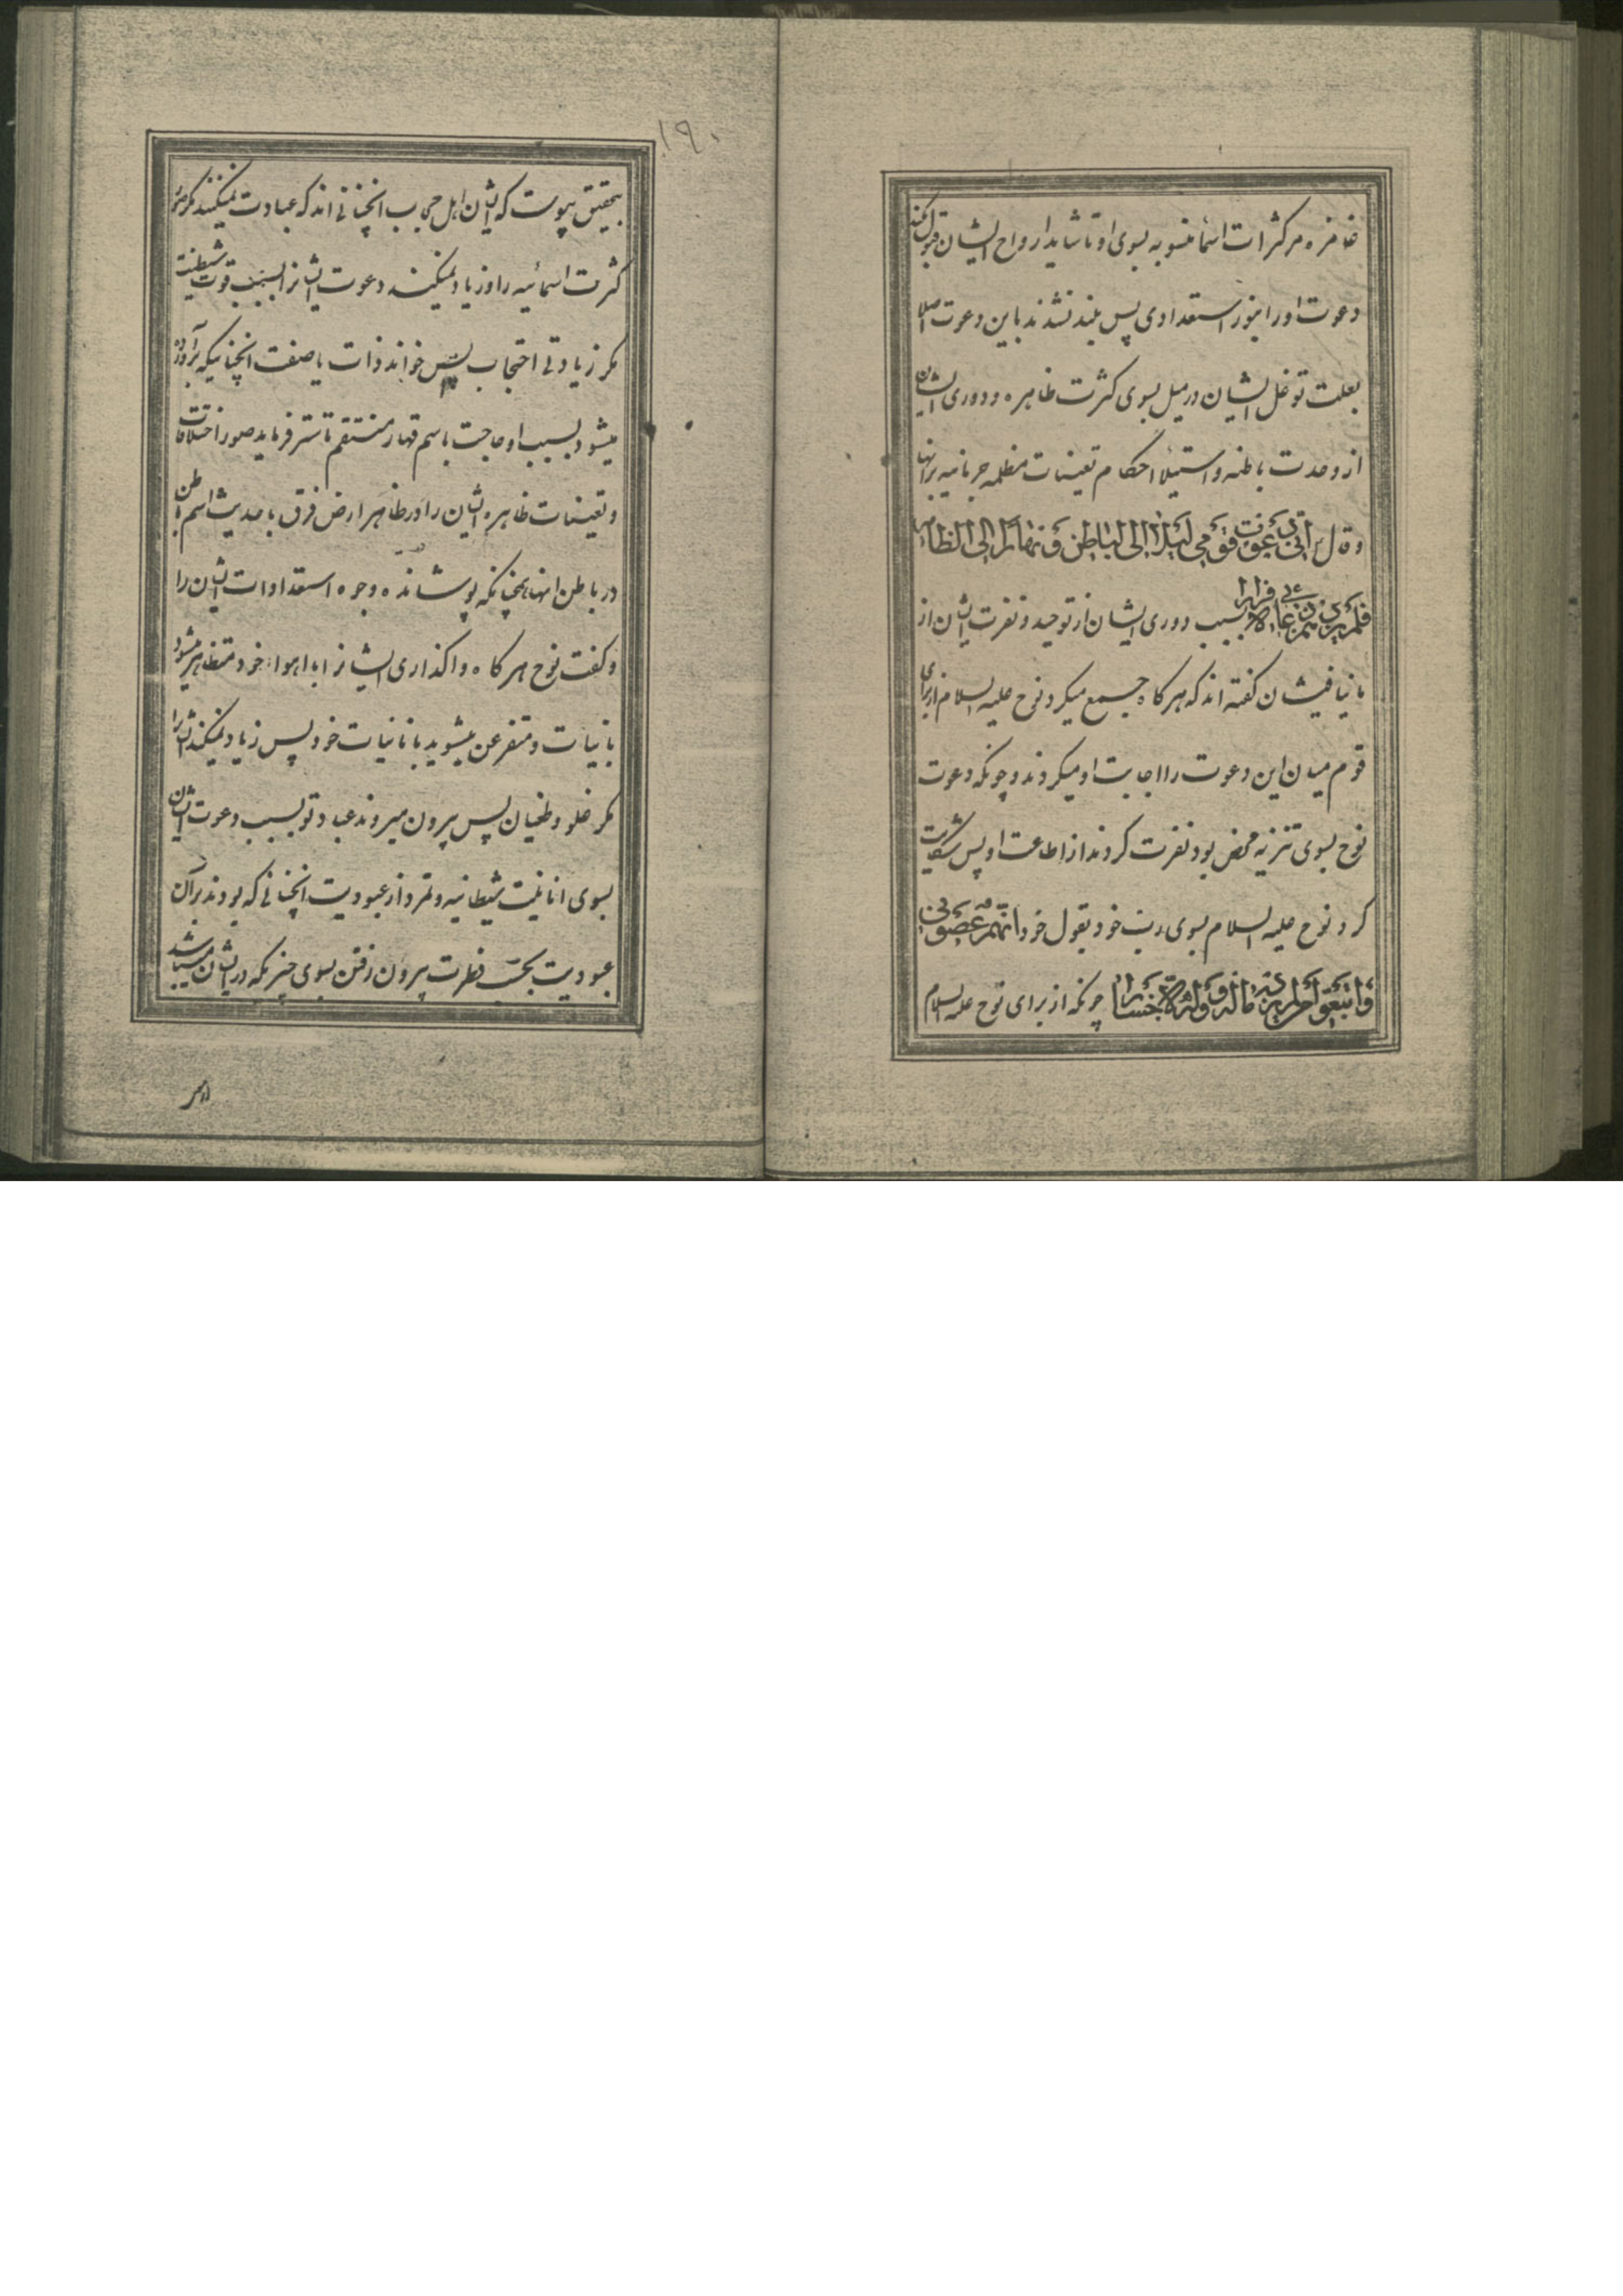 غامزه مر کثرات اسما منسوبه بسوی او تا شاید ارواح ایشان قبول کنند
دعوت او را بنور استعدادی پس بلند نشدند باین دعوت اصلا
بعلت توغل ایشان در میل بسوی کثرت ظاهره و دوری ایشان
از وحدت باطنه و استیلا احکام تعینات مظلمه جرمانیه بر انها
و قال رب انی دعوت قومی لیلا الی الباطن و نهارا الی الظاهر
فلم یزدهم دعائی الا فرارا بسبب دوری ایشان از توحید و نفرت ایشان از
ما ینافیشان گفته اند که هر کاه جمع میکرد نوح علیه السلام از برای
قوم میان این دعوت را اجابت او میکردند و چونکه دعوت
نوح بسوی تنزیه محض بود نفرت کردند از اطاعت او پس شکایت
کرد نوح علیه السلام بسوی رب خود بقول خود انهم عصونی
و اتبعوا من لم یزده ماله و ولده الا خسارا چونکه از برای نوح علیه السلام
۱۹۰
بتحقیق پیوست که ایشان اهل حجاب انچنانی اند که عبادت نمیکنند مکر صور
کثرت اسمائیه را و زیاد نمیکند دعوت ایشانرا بسبب قوت شیطنت
مکر زیادتی احتجاب پس خواند ذات با صفت انچنانیکه برآورده
میشود بسبب او حاجت باسم قهار منتقم تا ستر فرماید صور اختلافات
و تعینات ظاهره ایشان را در ظاهر ارض فرق باحدیث اسم باطن
در باطن انها همچنانکه پوشانده وجوه استعدادات ایشان را
و کفت نوح هر کاه واکذاری ایشانرا با اهواء خود متظاهر میشود
بانیات و متفرعن میشوید بانانیات خود پس زیاد نمیکنند ایشانرا
مکر ضلو و طغیان پس بیرون میروند عباد تو بسبب دعوت ایشان
بسوی انانیت شیطانیه و تمرد از عبودیت انچنانی که بودند بر آن
عبودیت بحسب فطرت بیرون رفتن بسوی چیزیکه در ایشان میباشد